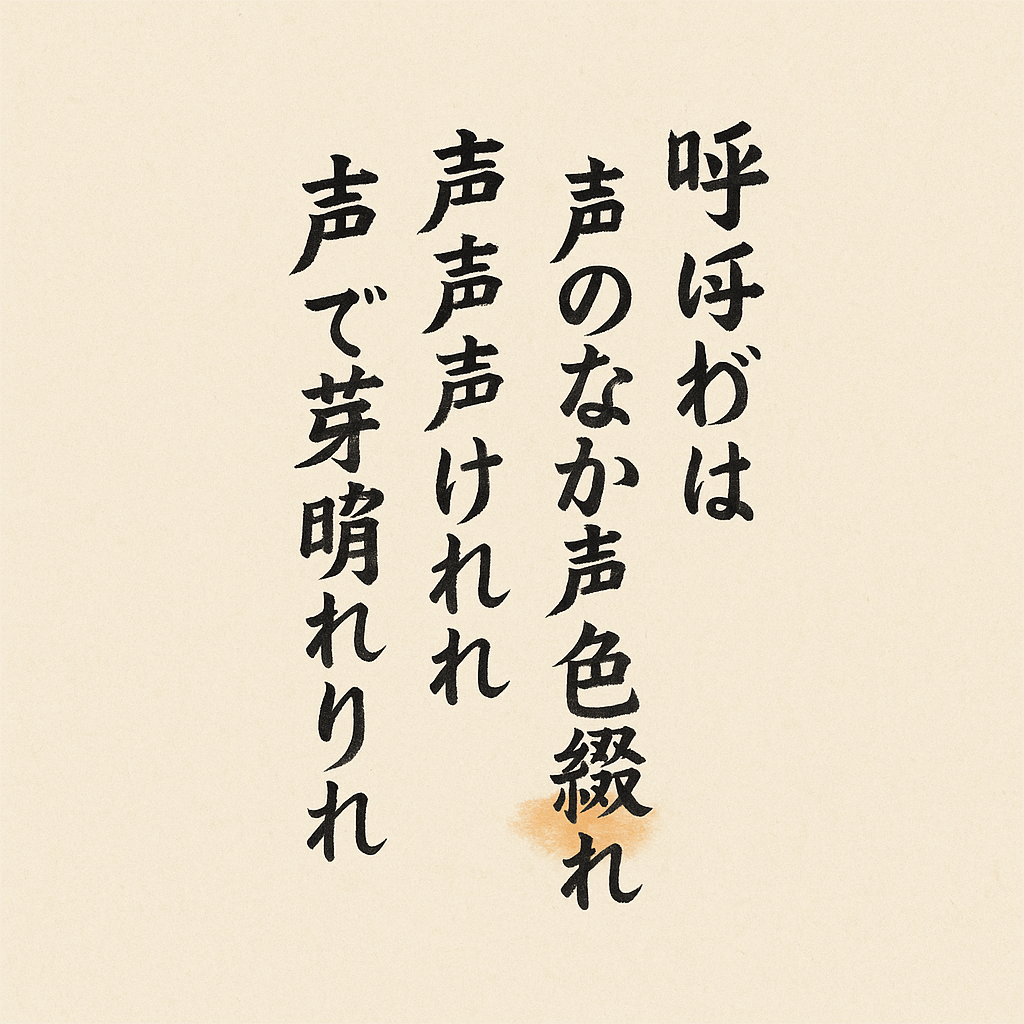 呼は
声のなか声色綴れ
声声声けれれ
声で芽れりれ